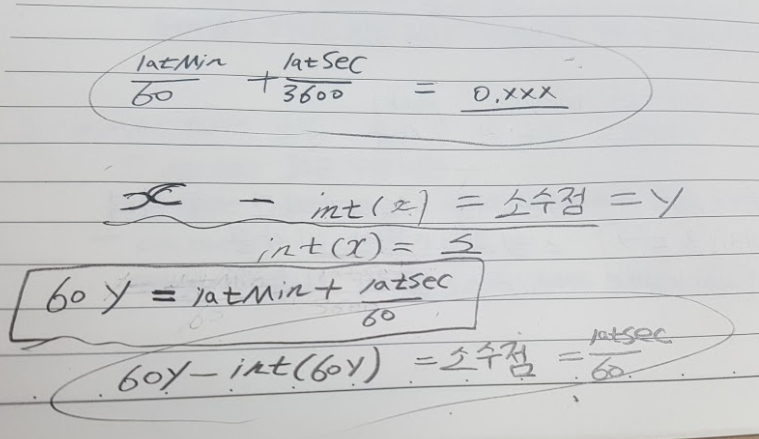 latMin/60 + latSec/3600 = 0.xxx
x - int(x) = 소수점 = Y
int(x) = 5
60Y = latMin + latsec/60
60Y - int(60Y) = 소수점 = latsec/60